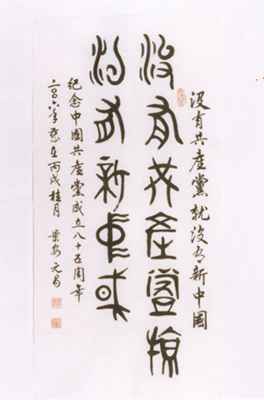 没有共產黨就沒有新中國
没有共產黨就
没有新中國
紀念中國共產黨成立八十五周年
二〇〇六年歲在丙戌桂月